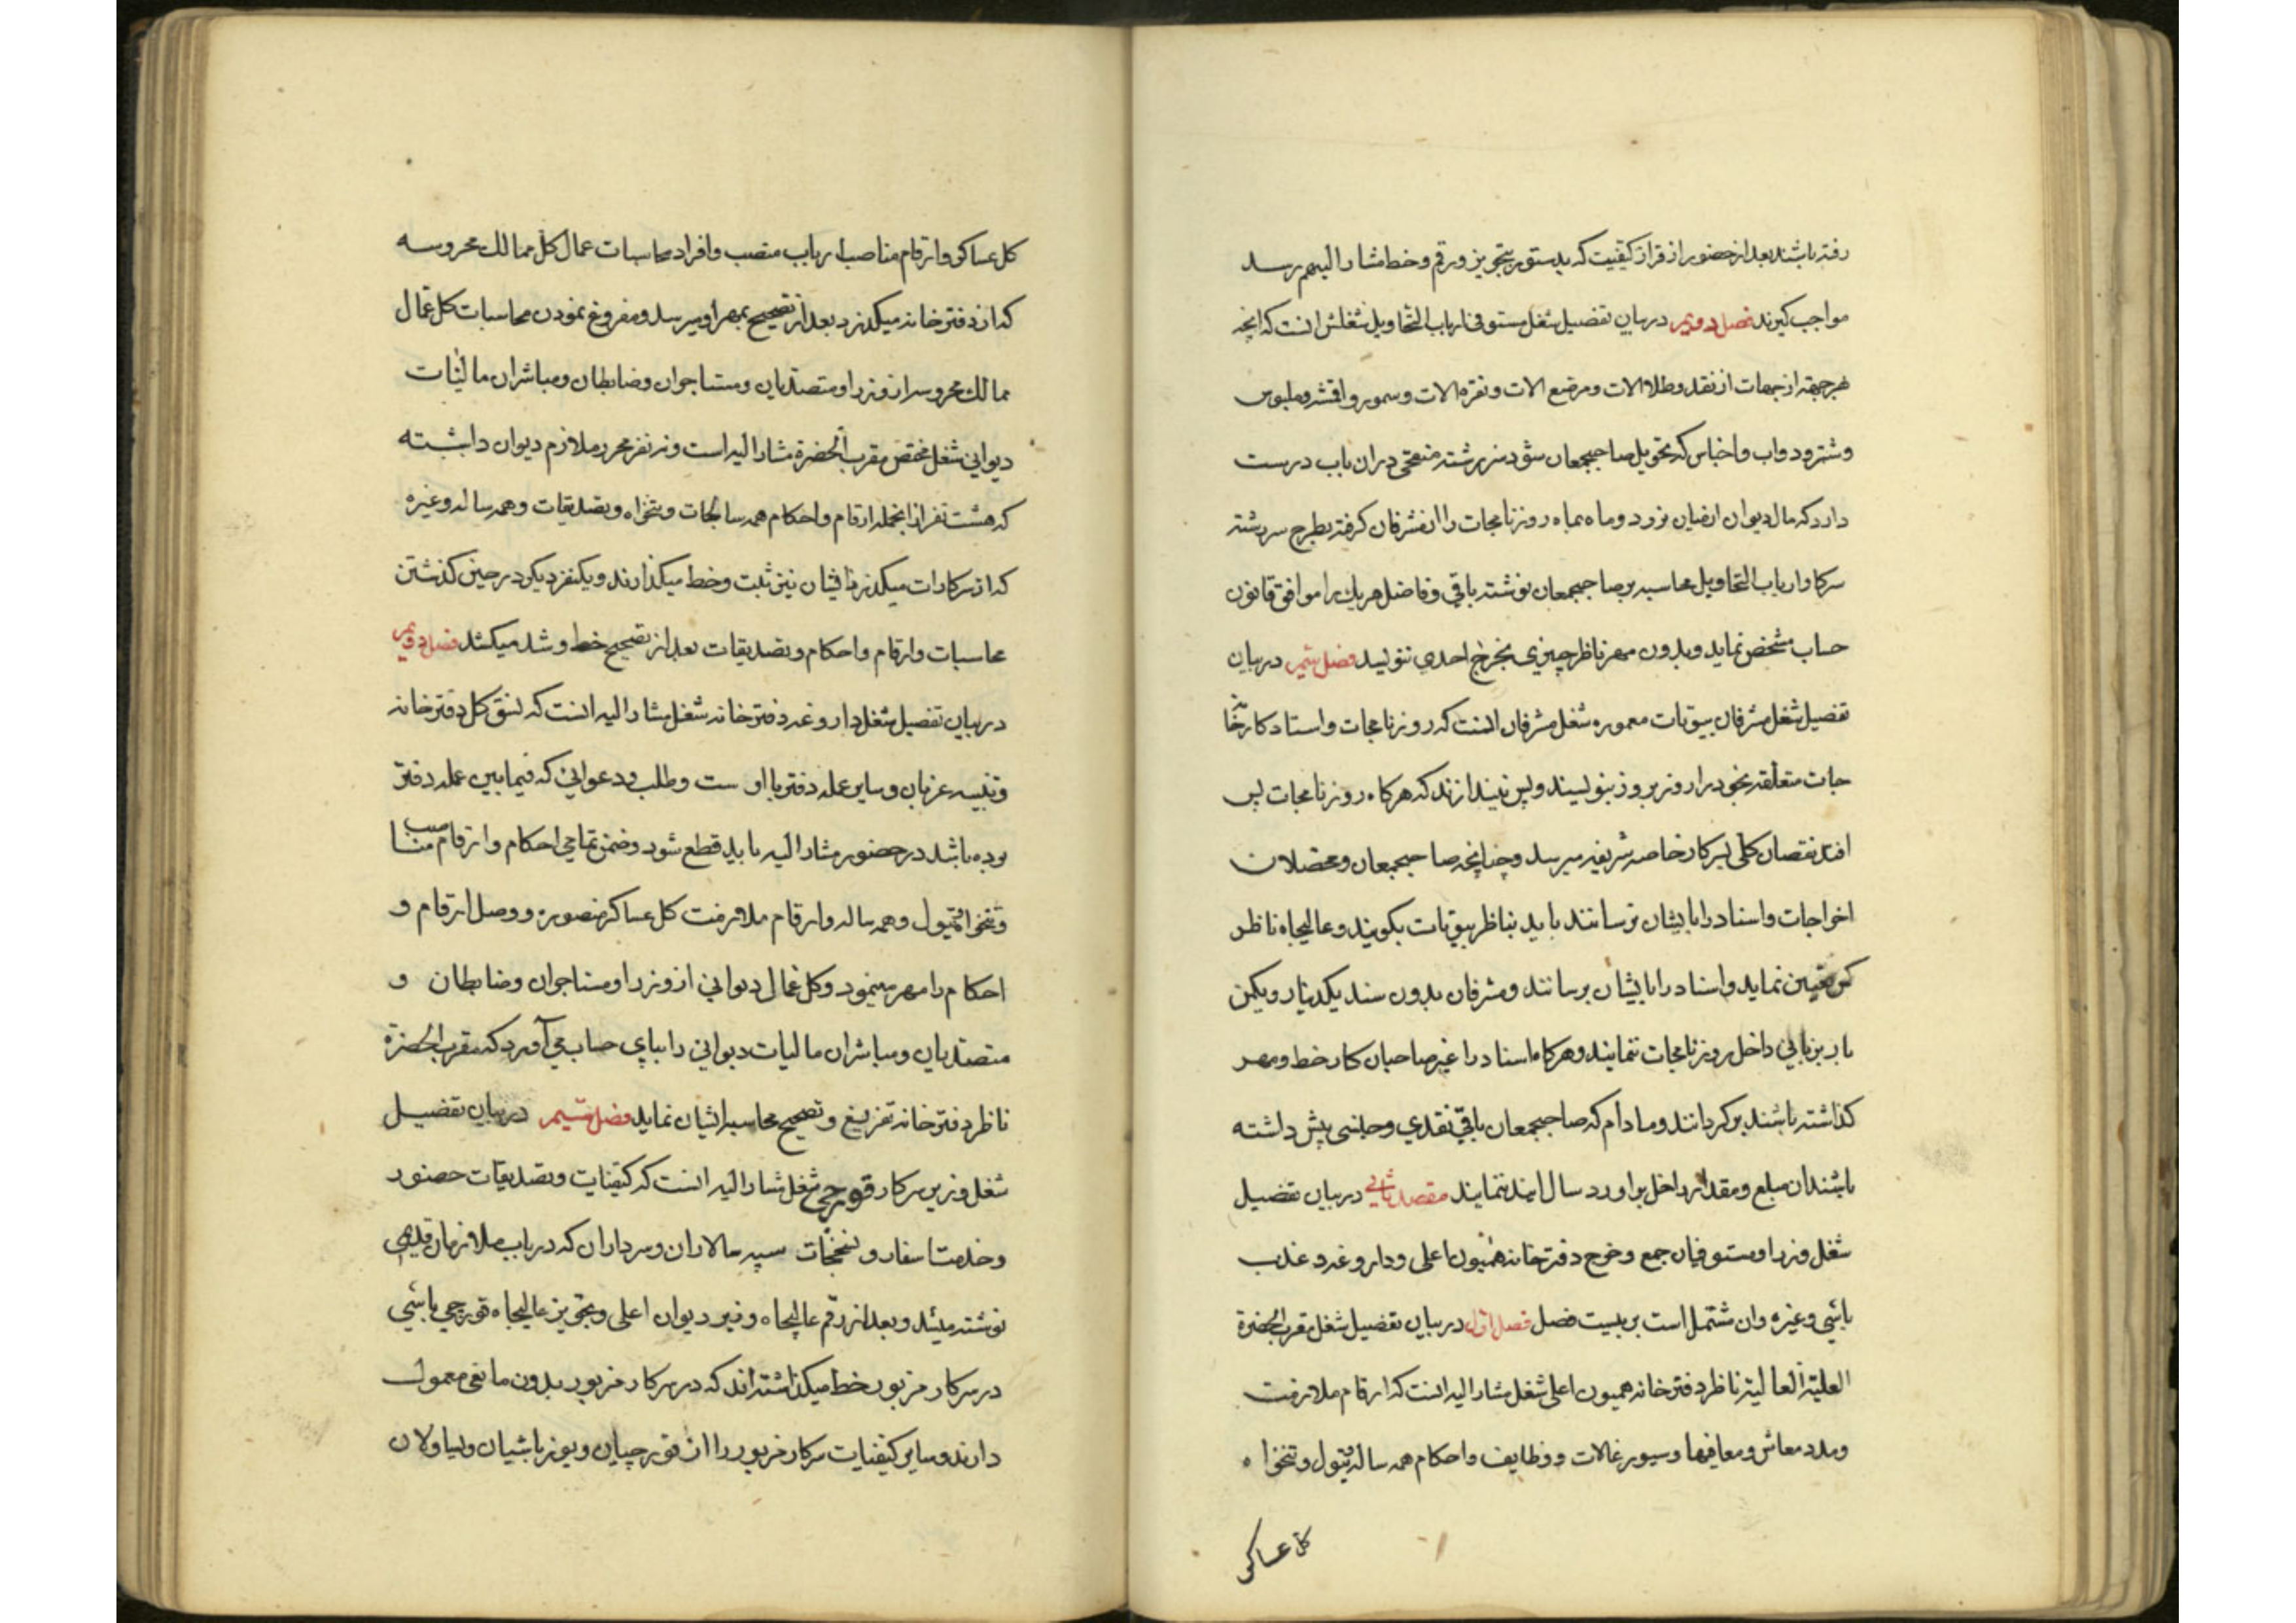 رفته باشند بعد از حضور از قرار کیفیت که بدستور بتجویز و رقم و خط مشار الیهم رسد
مواجب کیرند فصل دویم در بیان تفصیل شغل مستوفی ارباب التحاویل شغلش انست که انچه
هر جهة از جهات از نقد و طلا الات و مرصع الات و نقره الات و سمور و اقمشه و ملبوس
و شتر و دواب و اجناس که تحویل صاحبجمعان شود سر رشته منقحی دران باب درست
دارد که مال دیوان از میان نرود و ماه بماه روزنامجات را از مشرفان کرفته بطرح سر رشته
سرکار ارباب التحاویل محاسبه بر صاحبجمعان نوشته باقی و فاضل هر یك را موافق قانون
حساب مشخص نماید و بدون مهر ناظر چیزی بخرج احدی ننویسد فصل سیم در بیان
تفصیل شغل مشرفان بیوتات معموره شغل مشرفان انست که روزنامجات و اسناد کارخانه
جات متعلقه بخود را روز بروز بنویسند و پس نیندازند که هرکاه روزنامجات پس
افتد نقصان کلی بسرکار خاصه شریفه میرسد و چنانچه صاحبجمعان و محصلان
اخراجات و اسناد را بایشان نرسانند باید بناظر بیوتات بکویند و عالیجاه ناظر
کس تعیین نماید و اسناد را بایشان برسانند و مشرفان بدون سند یکدینار و یکمن
بار بزبانی داخل روزنامجات ننمایند و هرکاه اسناد را غیر صاحبان کار خط و مهر
کذاشته باشند برکردانند و مادام که صاحبجمعان باقی نقدی و جنسی پیش داشته
باشند ان مبلغ و مقدار داخل براورد سال اینده ننمایند مقصد ثانی در بیان تفصیل
شغل وزرا و مستوفیان جمع و خرج دفترخانه همیون اعلی و داروغه و عذب
باشی و غیره وان مشتمل است بر بیست فصل فصل اول در بیان تفصیل شغل مقرب الحضرة
العلیة العالیة ناظر دفترخانه همیون اعلی شغل مشار الیه انست که ارقام ملازمت
و مدد معاش و معافیها و سیورغالات و وظایف و احکام همه ساله و تیول و تنخواه
کل عساکر
کل عساکر و ارقام مناصب ارباب منصب و افراد محاسبات عمال کل ممالك محروسه
که از دفترخانه میکذرد بعد از تصحیح بمهر او میرسد و مفروغ نمودن محاسبات کل عمال
ممالك محروسه از وزرا و متصدیان و مستاجران و ضابطان و مباشران مالیات
دیوانی شغل مختص مقرب الحضرة مشار الیه است و نه نفر محرر ملازم دیوان داشته
که هشت نفر از انجمله ارقام و احکام همه سالجات و تنخواه و تصدیقات و همه ساله و غیره
که از سرکارات میکذرد ایشان نیز ثبت و خط میکذارند و یکنفر دیکر در حین کذشتن
محاسبات و ارقام و احکام و تصدیقات بعد از تصحیح خط و شد میکشد فصل دویم
در بیان تفصیل شغل داروغه دفترخانه شغل مشار الیه انست که نسق کل دفترخانه
و تنبیه عزبان و سایر عمله دفتر با او ست و طلب و دعوایی که فیمابین عمله دفتر
بوده باشد در حضور مشار الیه باید قطع شود و ضمن تمامی احکام و ارقام مناصب
و تنخواه تیول و همه ساله و ارقام ملازمت کل عساکر منصوره و وصل ارقام و
احکام را مهر مینمود و کل عمال دیوانی از وزرا و مستاجران و ضابطان و
متصدیان و مباشران مالیات دیوانی را بپای حساب می آورد که مقرب الحضرة
ناظر دفترخانه تفریغ و تصحیح محاسبه ایشان نماید فصل سیم در بیان تفضیل
شغل وزیر سرکار قورچی شغل مشار الیه انست که کیفیات و تصدیقات حضور
و خدمت اسفار و نسخجات سپه سالاران و سرداران که در باب ملازمان قدیمی
نوشته میشد و بعد از رقم عالیجاه وزیر دیوان اعلی و تجویز عالیجاه قورچی باشی
در سرکار مزبور خط میکذاشته اند که در سرکار مزبور بدون مانعی معمول
دارند و سایر کیفیات سرکار مزبور را از قورچیان و یوزباشیان و یساولان